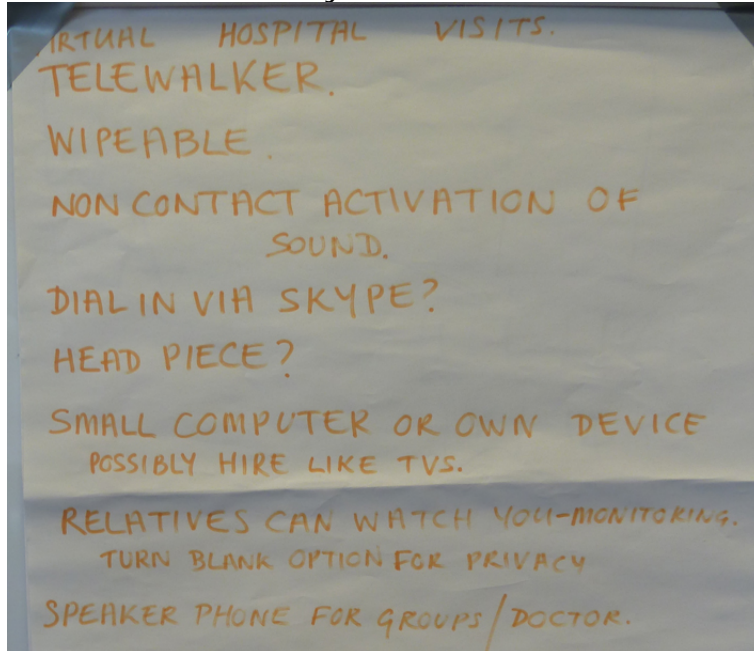 VIRTUAL HOSPITAL VISITS.
TELEWALKER.
WIPEABLE.
NON CONTACT ACTIVATION OF
SOUND.
DIAL IN VIA SKYPE?
HEAD PIECE?
SMALL COMPUTER OR OWN DEVICE
POSSIBLY HIRE LIKE TVS.
RELATIVES CAN WATCH YOU-MONITORING.
TURN BLANK OPTION FOR PRIVACY
SPEAKER PHONE FOR GROUPS/DOCTOR.